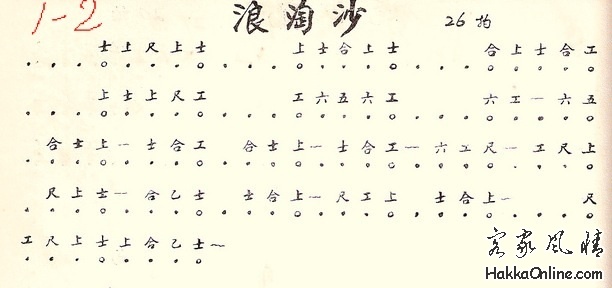 1-2 浪淘沙 26拍
士上尺上士 上士合上士 合上士合工
上士上尺工 工六五六工 六工一六五
合士上一士合工 合士上一士合工一六工尺一工尺上
尺上士一合乙士 士合上一尺工上 士合上一 尺
工尺上士上合乙士~
客家风情
HakkaOnline.com